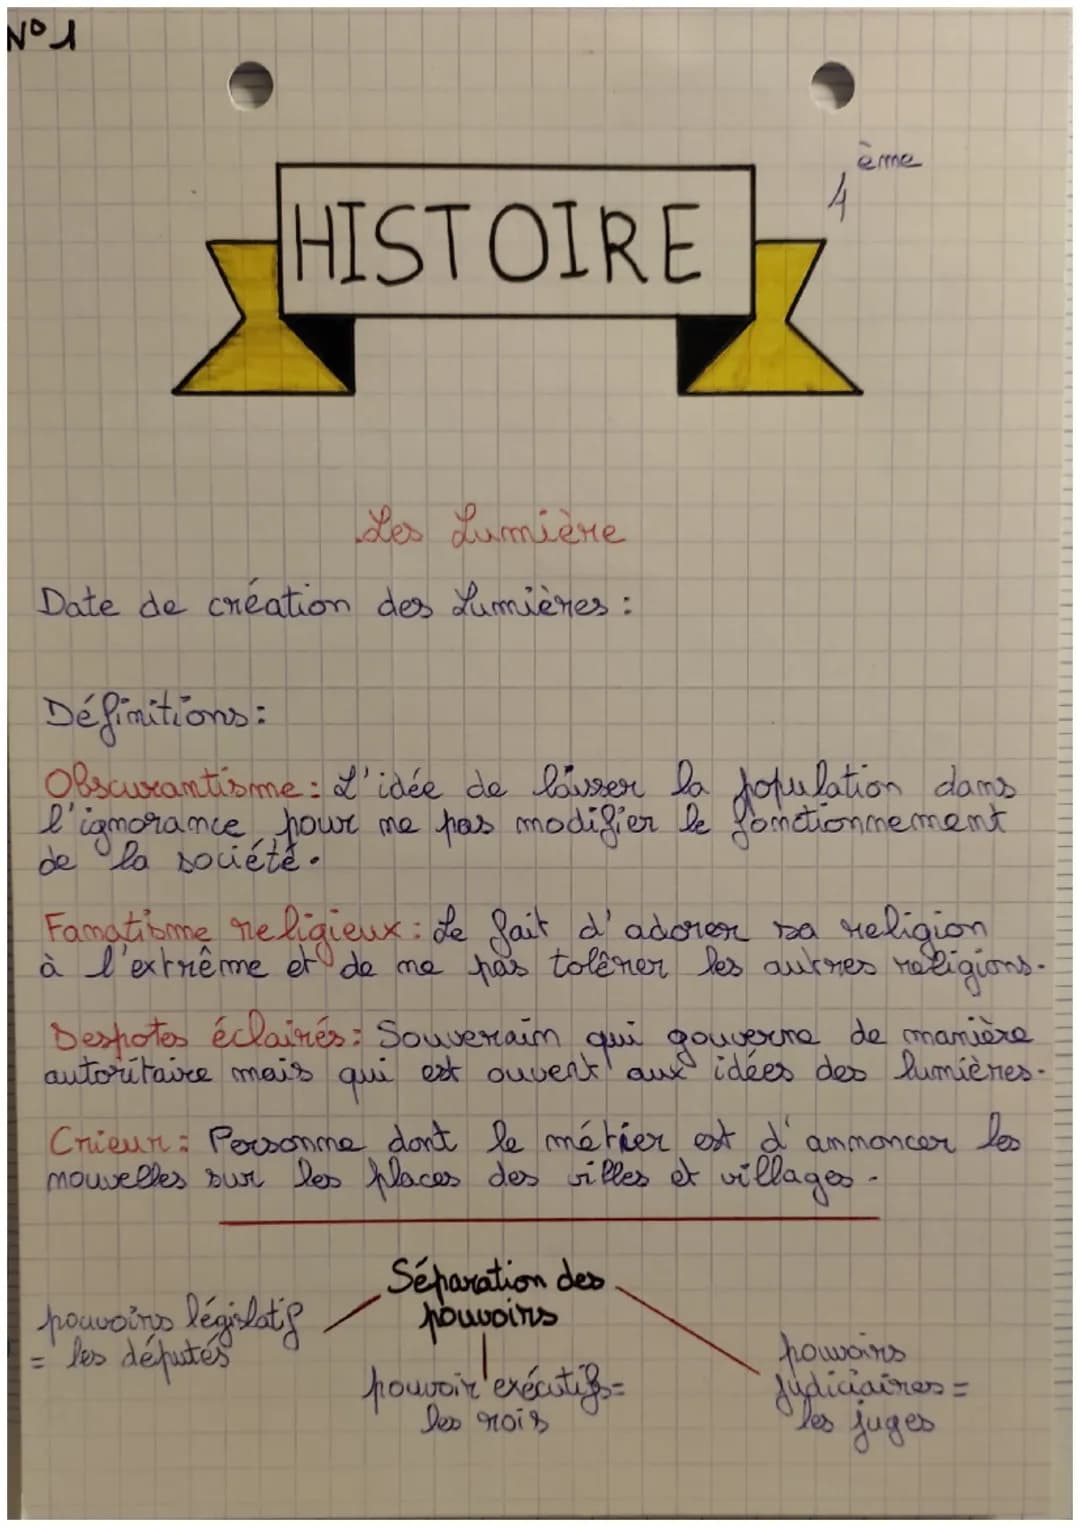 N°1
ème
4
HISTOIRE
Les Lumière
Date de création des Lumières :
Définitions :
Obscurantisme : L'idée de laisser la population dans
l'ignorance pour ne pas modifier le fonctionnement
de la société.
Fanatisme religieux : Le fait d'adorer sa religion
à l'extrême et de ne pas tolérer les autres religions.
Despotes éclairés : Souverain qui gouverne de manière
autoritaire mais qui est ouvert aux idées des lumières.
Crieur : Personne dont le métier est d'annoncer les
nouvelles sur les places des villes et villages.
Séparation des
pouvoirs
pouvoirs législatif
= les députés
pouvoir exécutifs =
les rois
pouvoirs
judiciaires =
les juges